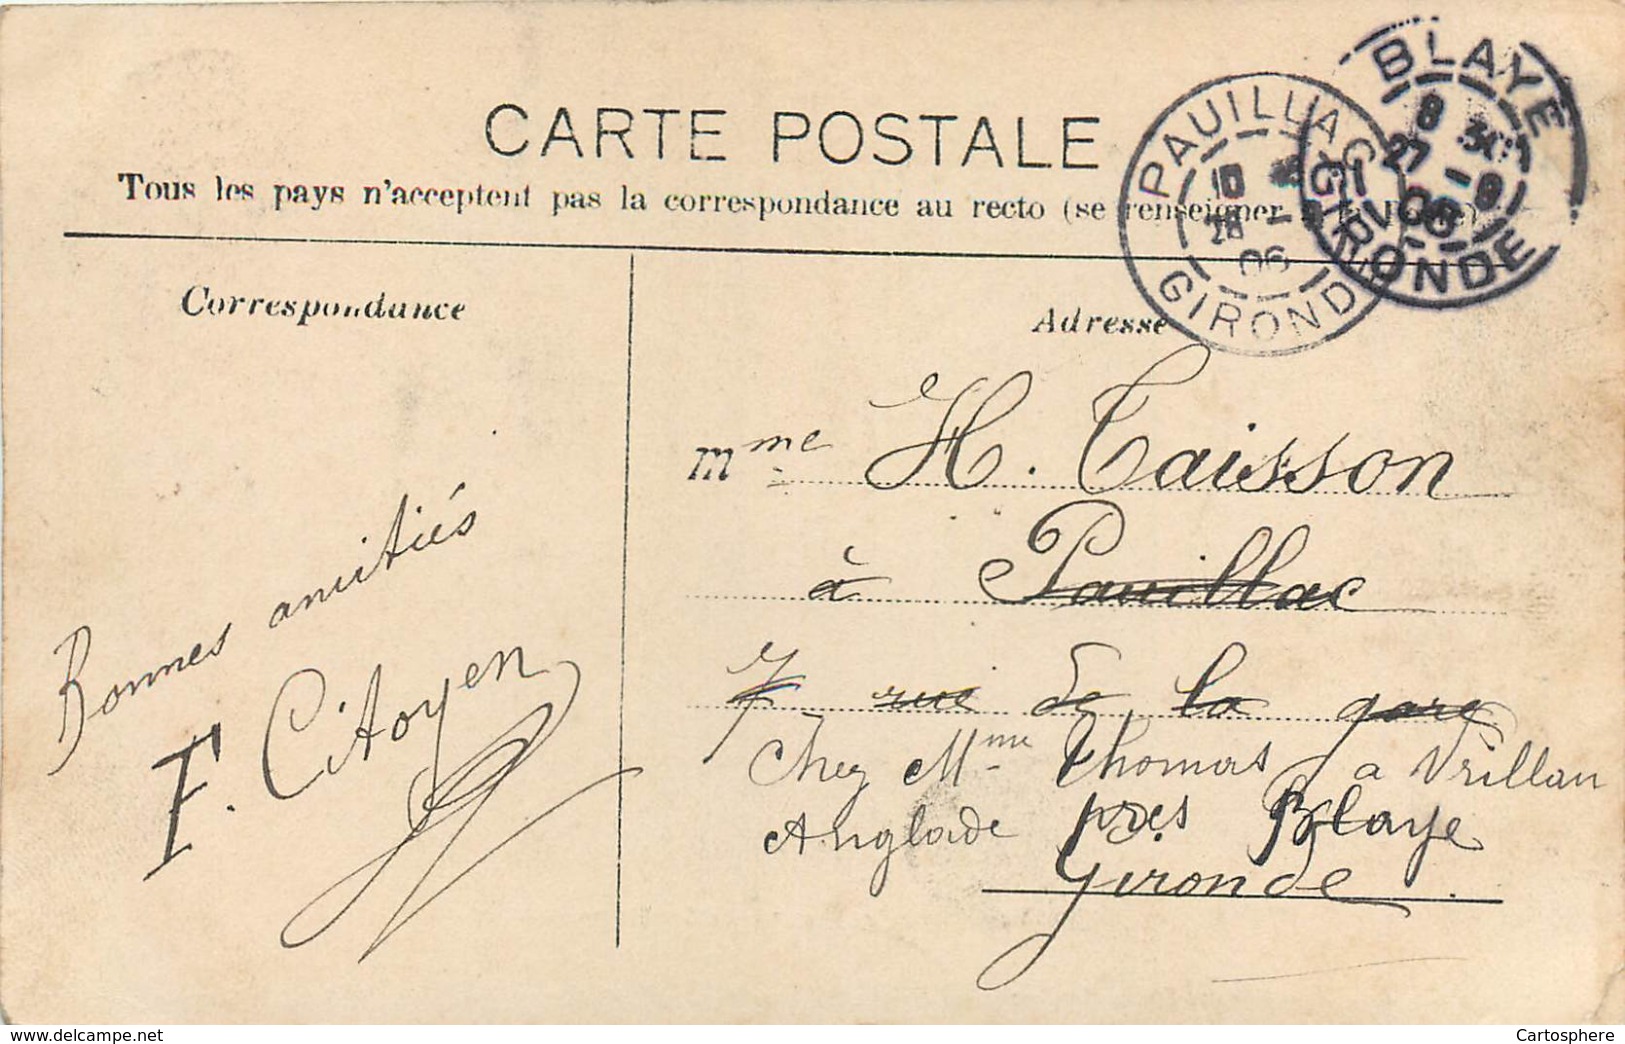 CARTE POSTALE
Tous les pays n'acceptent pas la correspondance au recto (se renseigner
Correspondance
Adresse
PAUILLAC
10
28 - 06
GIRONDE
BLAYE
8 30
27 - 9
06
GIRONDE
Mme H. Taisson
à Pauillac
7 rue de la gare
Chez Mme Thomas a Vrillan
Anglade près Blaye
Gironde
Bonnes amitiés
F. Citoyen
www.delcampe.net
Cartosphere